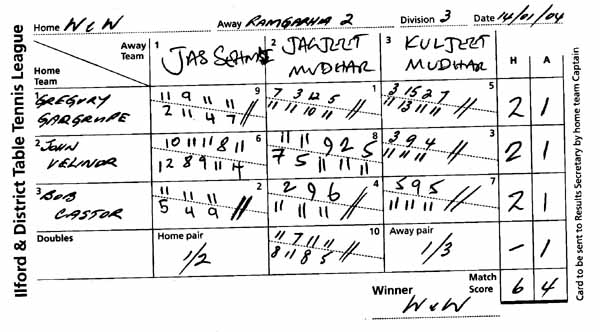 Ilford & District Table Tennis League
Home W & W Away RAMGARHIA 2 Division 3 Date 14/01/04
Away Team 1 JAS SEHMI 2 JAGJEET MUDHAR 3 KULJEET MUDHAR H A
Home Team
1 GREGORY GARGRUPE
9
11 9 11 11
2 11 4 7 //
1
7 3 12 5
11 11 10 11 //
5
3 15 2 7
11 13 11 11 //
2 1
2 JOHN VELINOR
6
10 11 11 8 11
12 8 9 11 4
8
11 11 9 2 5
7 5 11 11 11
4
3 9 4
11 11 11 //
2 1
3 BOB CASTOR
2
11 11 11
5 4 9 //
4
2 9 6
11 11 11 //
7
5 9 5
11 11 11 //
2 1
Doubles
Home pair 1/2
10
11 7 11 11
8 11 8 5 //
Away pair 1/3
- 1
Winner W & W
Match Score 6 4
Card to be sent to Results Secretary by home team Captain